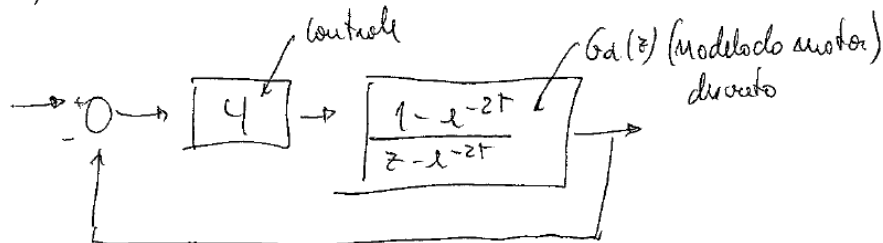 controle
Gd(z) (modelo do motor)
discreto
+
-
4
1 - e^-2T
z - e^-2T